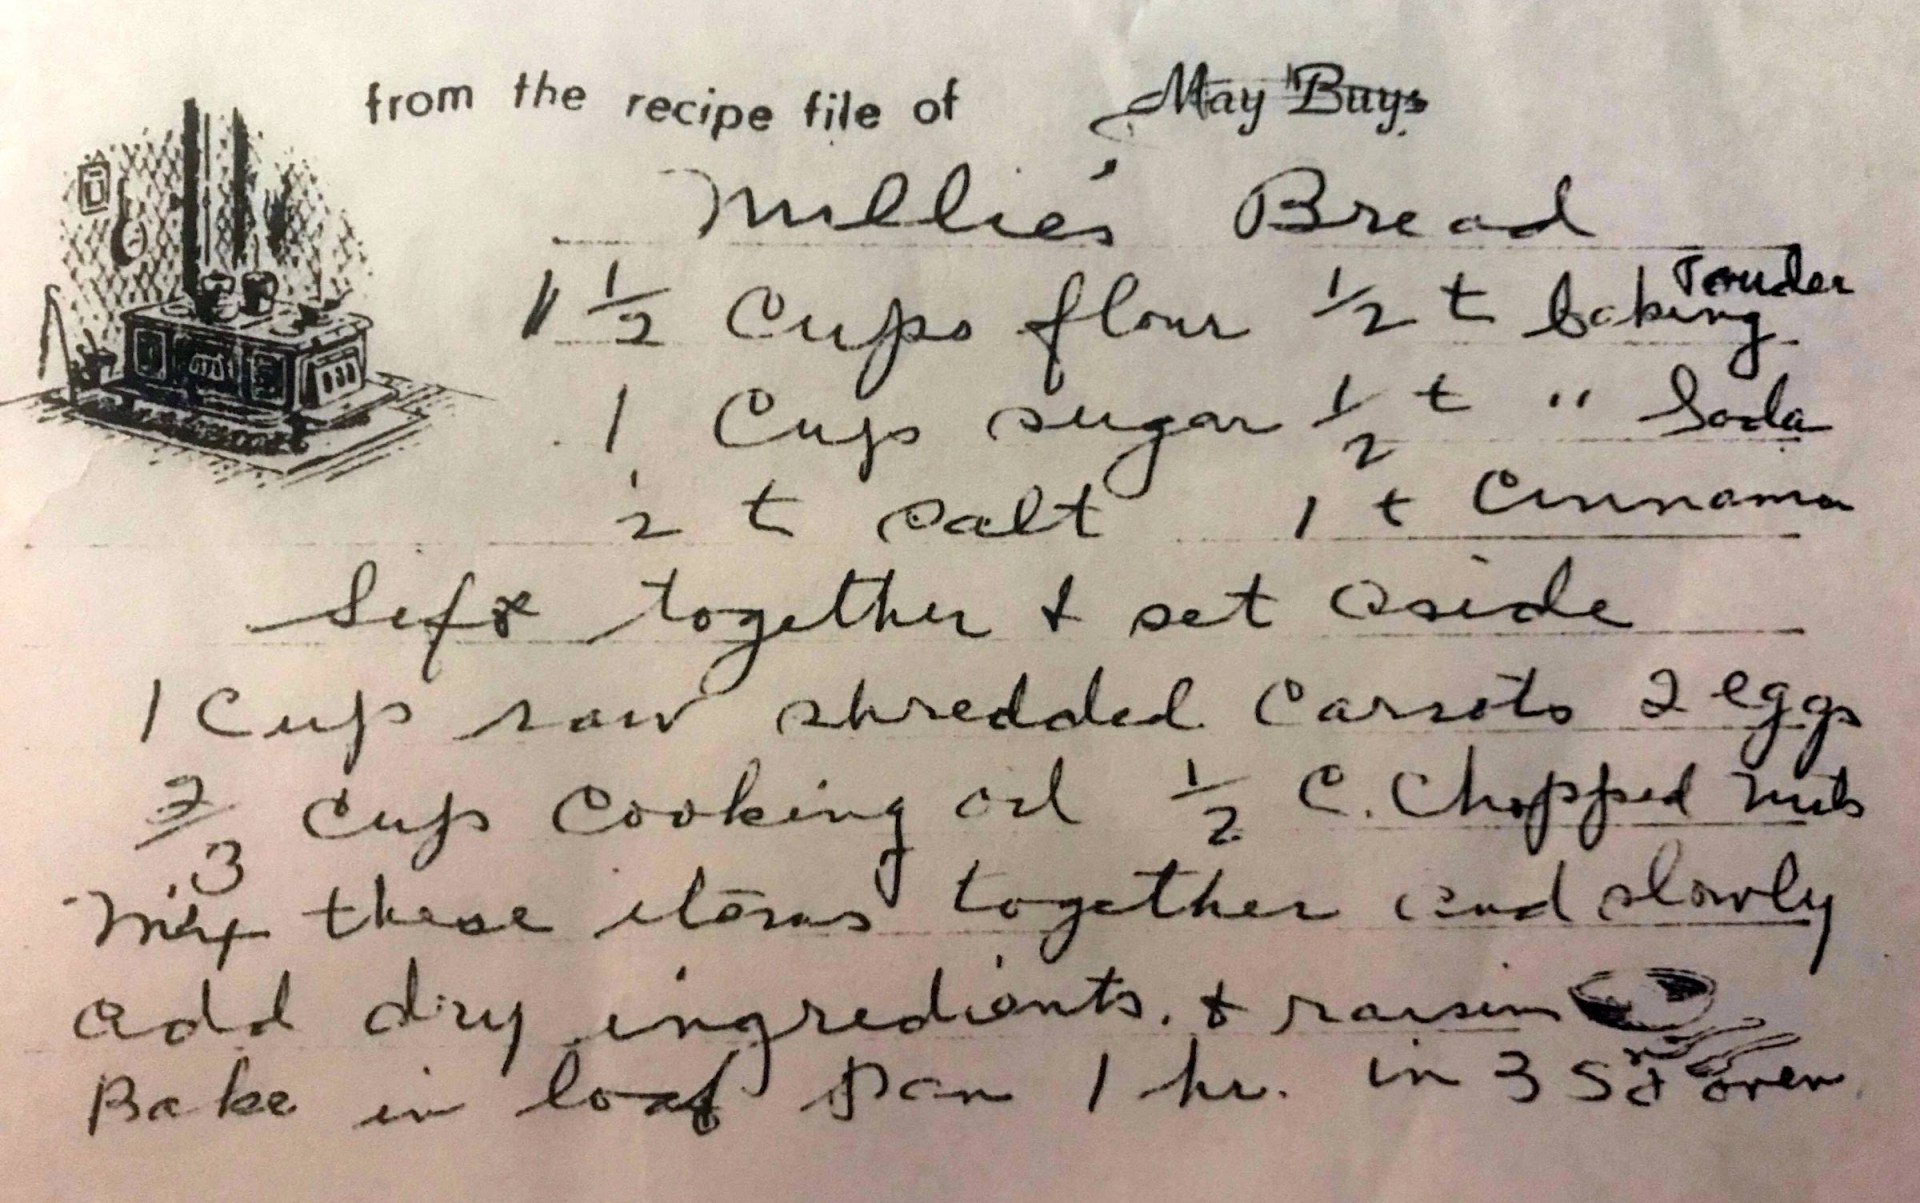 from the recipe file of May Buys
Millie's Bread
1 1/2 Cups flour 1/2 t baking Powder
1 Cup sugar 1/2 t " Soda
1/2 t salt 1 t Cinnamon
Sift together & set aside
1 Cup raw shredded Carrots 2 eggs
2/3 Cup Cooking oil 1/2 C. Chopped nuts
Mix these items together and slowly
add dry ingredients. & raisins
Bake in loaf pan 1 hr. in 350 oven